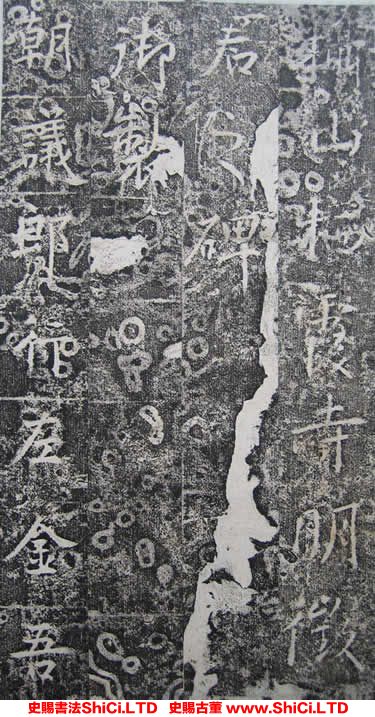 攝山栖霞寺明徵
君之碑
御製
朝議郎行左金吾
史賜書法ShiCi.LTD 史賜古董www.ShiCi.LTD